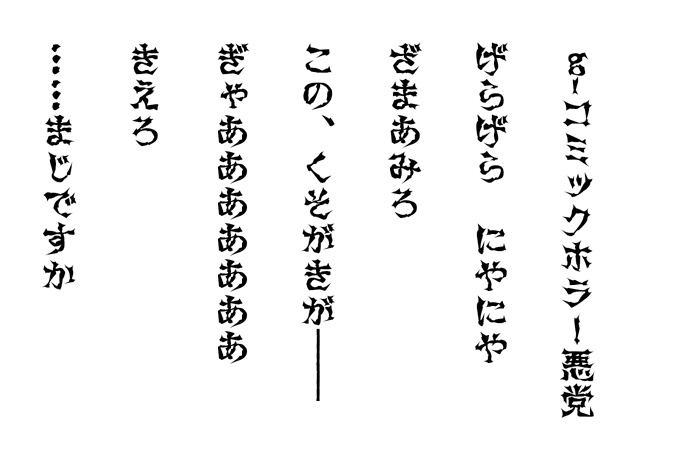 g-コミックホラー悪党
げらげら　にやにや
ざまあみろ
この、くそがきが――
ぎゃああああああああ
きえろ
……まじですか